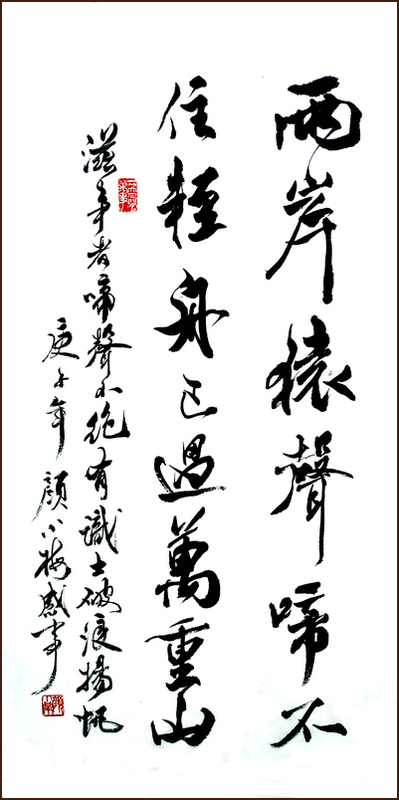 兩岸猿聲啼不
住輕舟已過萬重山
滋事者啼聲不絕有識士破浪揚帆
庚子年顏小梅感事